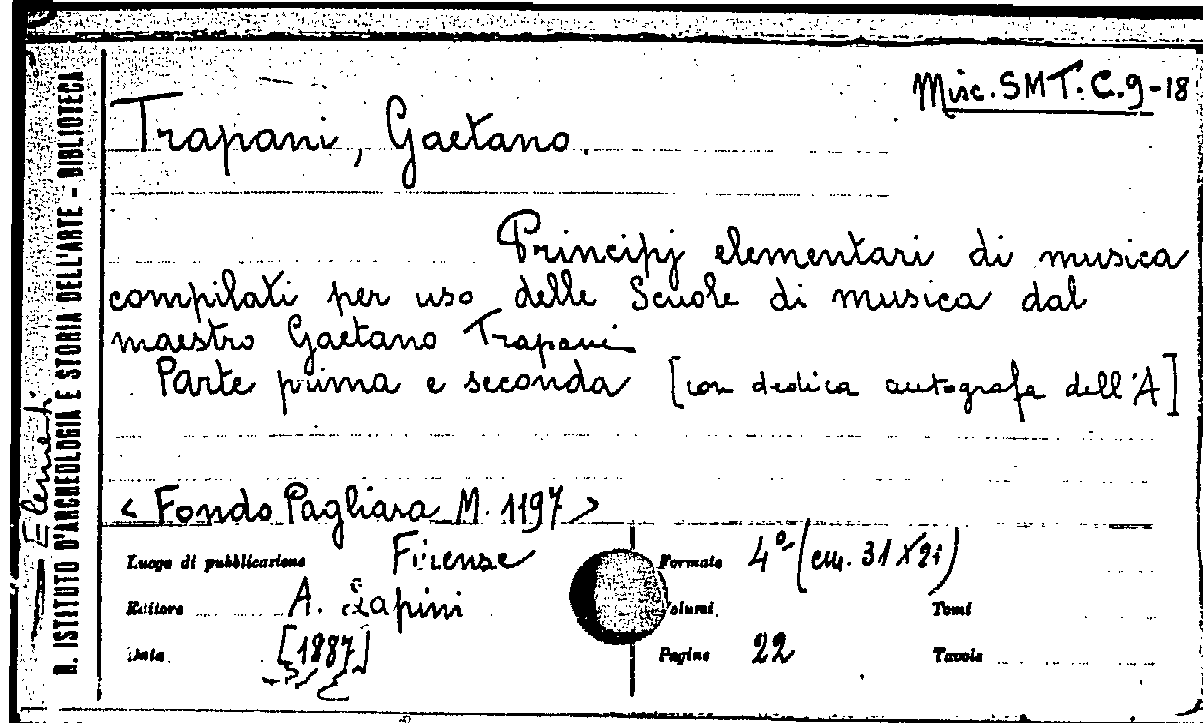 Misc. SMT. C. 9-18
Trapani, Gaetano.
Principj elementari di musica
compilati per uso delle Scuole di musica dal
maestro Gaetano Trapani
Parte prima e seconda [con dedica autografa dell'A]
< Fondo Pagliara M. 1197 >
Luogo di pubblicazione Firenze
Editore A. Lapini
Data [1887]
Formato 4° (cm. 31 X 21)
Volumi Tomi
Pagine 22 Tavole
R. ISTITUTO D'ARCHEOLOGIA E STORIA DELL'ARTE - BIBLIOTECA
Elementi